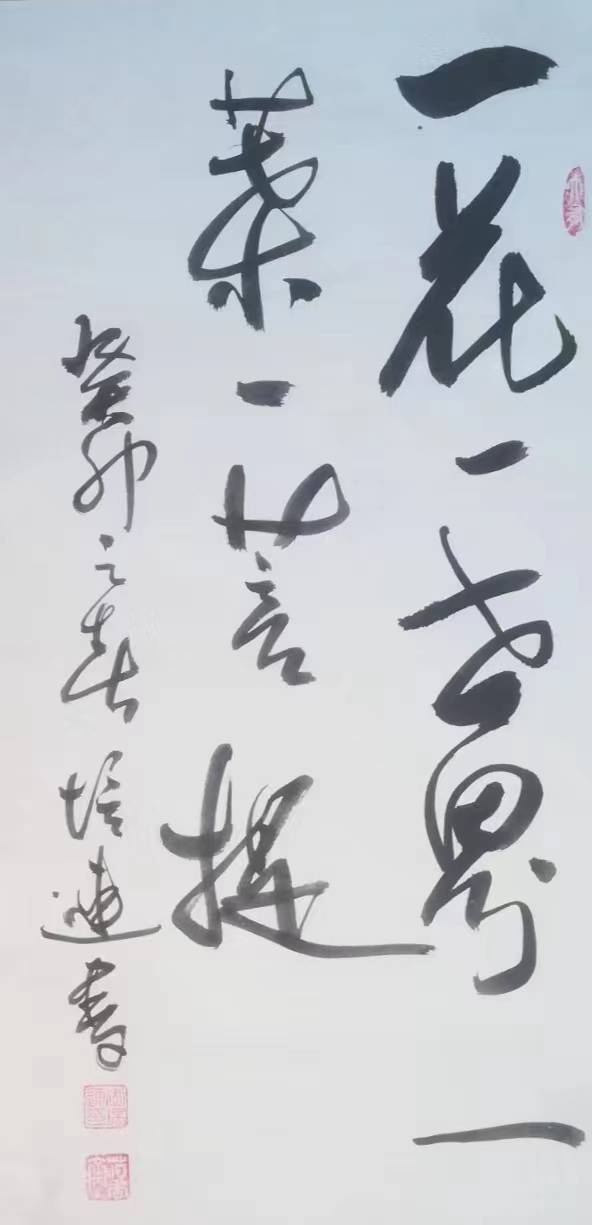 一花一世界一
葉一菩提
癸卯之春培連书